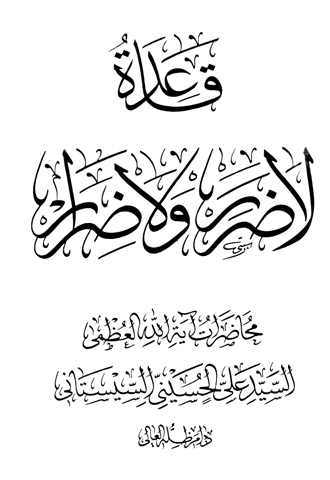 قَاعِدَةُ
لَا ضَرَرَ وَلَا ضِرَارَ
مُحَاضَرَاتُ آيَةِ اللهِ العُظْمَى
السَّيِّدِ عَلِيّ الحُسَيْنِيّ السِّيسْتَانِي
دَامَ ظِلُّهُ العَالِي